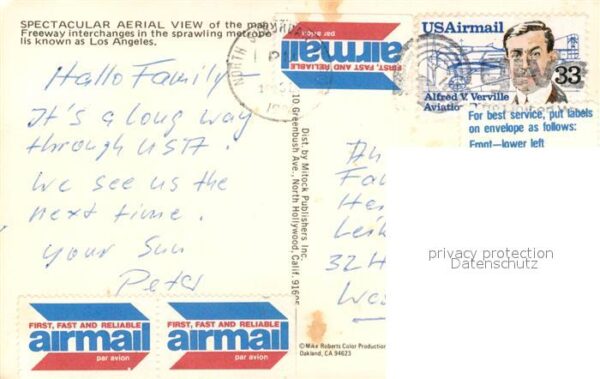 SPECTACULAR AERIAL VIEW of the many
Freeway interchanges in the sprawling metropo-
lis known as Los Angeles.
Hallo Family –
It's a long way
through USA!
We see us the
next time.
Your Sun
Peter
FIRST, FAST AND RELIABLE
airmail
par avion
FIRST, FAST AND RELIABLE
airmail
par avion
Dist. by Mitock Publishers Inc.
10 Greenbush Ave., North Hollywood, Calif. 91605
©Mike Roberts Color Production
Oakland, CA 94623
airmail
FIRST, FAST AND RELIABLE
NORTH
USAirmail
33
Alfred V. Verville
Aviation
For best service, put labels
on envelope as follows:
Front—lower left
An
Fa
He
Lei
32 H
We
privacy protection
Datenschutz